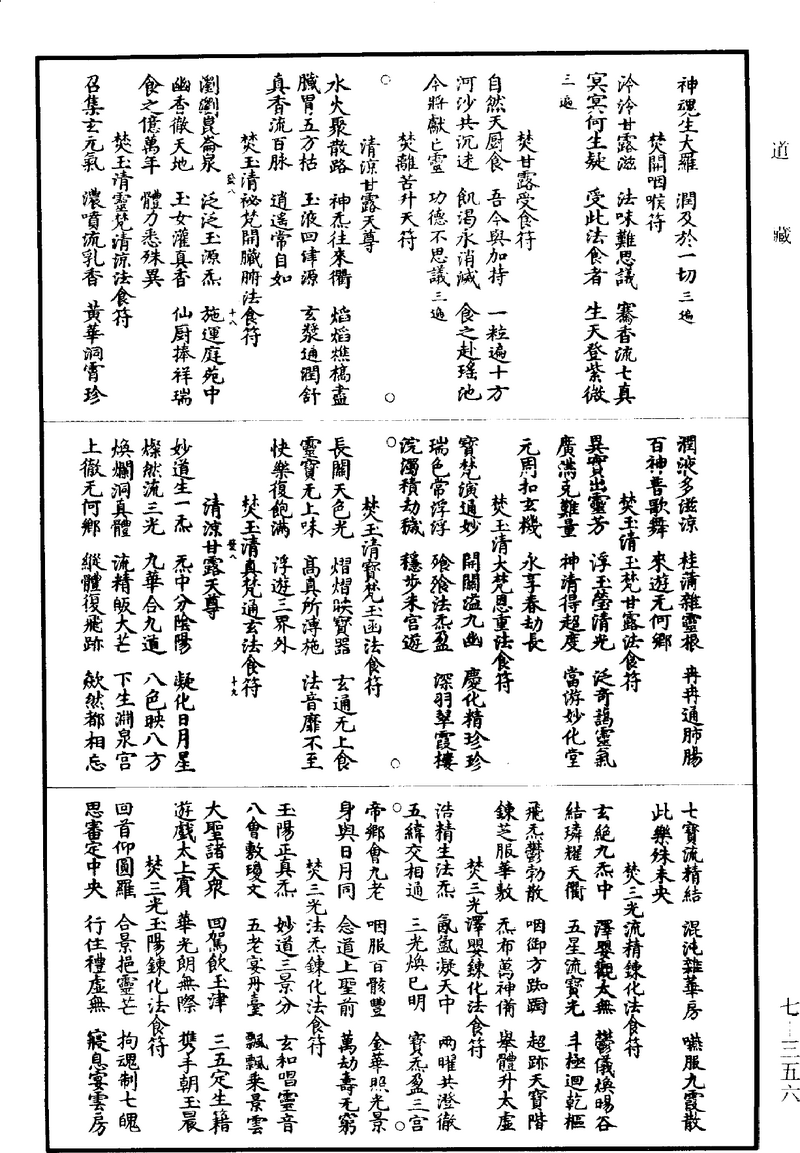 道藏
神魂生大羅　潤及於一切三遍
焚開咽喉符
泠泠甘露滋　法味難思議　騫香流七真
冥冥何生疑　受此法食者　生天登紫微
三遍
焚甘露受食符
自然天厨食　吾今與加持　一粒遍十方
河沙共沉迷　飢渴永消滅　食之赴瑤池
今將獻亡靈　功德不思議三遍
焚離苦升天符
清涼甘露天尊
水火聚散路　神炁往來衢　焰焰燋槁盡
臟胃五方枯　玉液回肆源　玄漿通潤舒
真香流百脉　逍遥常自如
焚玉清祕梵開臟腑法食符
瀏瀏崑崙泉　泛泛玉源炁　施運庭苑中
幽香徹天地　玉女灌真香　仙厨捧祥瑞
食之億萬年　體力悉殊異
焚玉清靈梵清涼法食符
召集玄元氣　濃噴流乳香　黄華洞霄珍
潤液多滋涼　桂蒲雜靈根　冉冉通肺腸
百神普歌舞　來遊无何鄉
焚玉清玉梵甘露法食符
異寶出靈芳　浮玉瑩清光　泛奇謁靈氣
廣濟克難量　神清得超度　當游妙化堂
元周扣玄機　永享春劫長
焚玉清大梵恩重法食符
寶梵演通妙　開關溢九幽　慶化精珍珍
瑞色常浮浮　飱飱法炁盈　深羽翠霞樓
浣濁積劫穢　穩步朱宫遊
焚玉清寶梵玉函法食符
長闊天色光　熠熠映寶器　玄通无上食
靈寶无上味　高真所溥施　法音靡不至
快樂復飽滿　浮遊三界外
焚玉清真梵通玄法食符
清涼甘露天尊
妙道生一炁　炁中分陰陽　凝化日月星
燦然流三光　九華合九道　八色映八方
焕爛洞真體　流精皈大芒　下生淵泉宫
上徹无何鄉　縱體復飛跡　歘然都相忘
七寶流精結　混沌雜華房　嚥服九霞散
此樂殊未央
焚三光流精鍊化法食符
玄絶九炁中　澤嬰觀太無　欝儀焕暘谷
結璘耀天衢　五星流寶光　斗極迴乾樞
飛炁欝勃散　咽御方踟蹰　超跡天寶階
鍊芝服華敷　炁布萬神備　舉體升太虚
焚三光澤嬰鍊化法食符
浩精生法炁　氤氲凝天中　兩曜共澄徹
五緯交相通　三光焕已明　寶炁盈三宫
帝鄉會九老　咽服百骸豐　金華照光景
身與日月同　念道上聖前　萬劫壽无窮
焚三光法炁鍊化法食符
玉陽正真炁　妙道三景分　玄和唱靈音
八會敷瓊文　五老宴丹臺　飄飄乘景雲
大聖諸天衆　回駕飲玉津　三五定生籍
遊戲太上賓　華光朗無際　携手朝玉晨
焚三光玉陽鍊化法食符
回首仰圓羅　合景挹靈芒　拘魂制七魄
思審定中央　行住禮虚無　寢息宴雲房
七—三五六